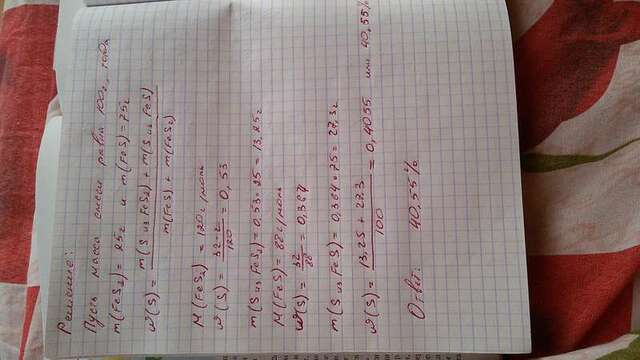 Решение:
Пусть масса смеси равна 100г, тогда
m(FeS₂) = 25г и m(FeS) = 75г
ω(S) = m(S из FeS₂) + m(S из FeS)
m(FeS) + m(FeS₂)
M(FeS₂) = 120г/моль
ω(S) = 32·2/120 = 0,53
m(S из FeS₂) = 0,53·25 = 13,25г
M(FeS) = 88г/моль
ω(S) = 32/88 = 0,364
m(S из FeS) = 0,364·75 = 27,3г
ω(S) = 13,25 + 27.3/100 = 0,4055 или 40,55%
Ответ: 40,55%